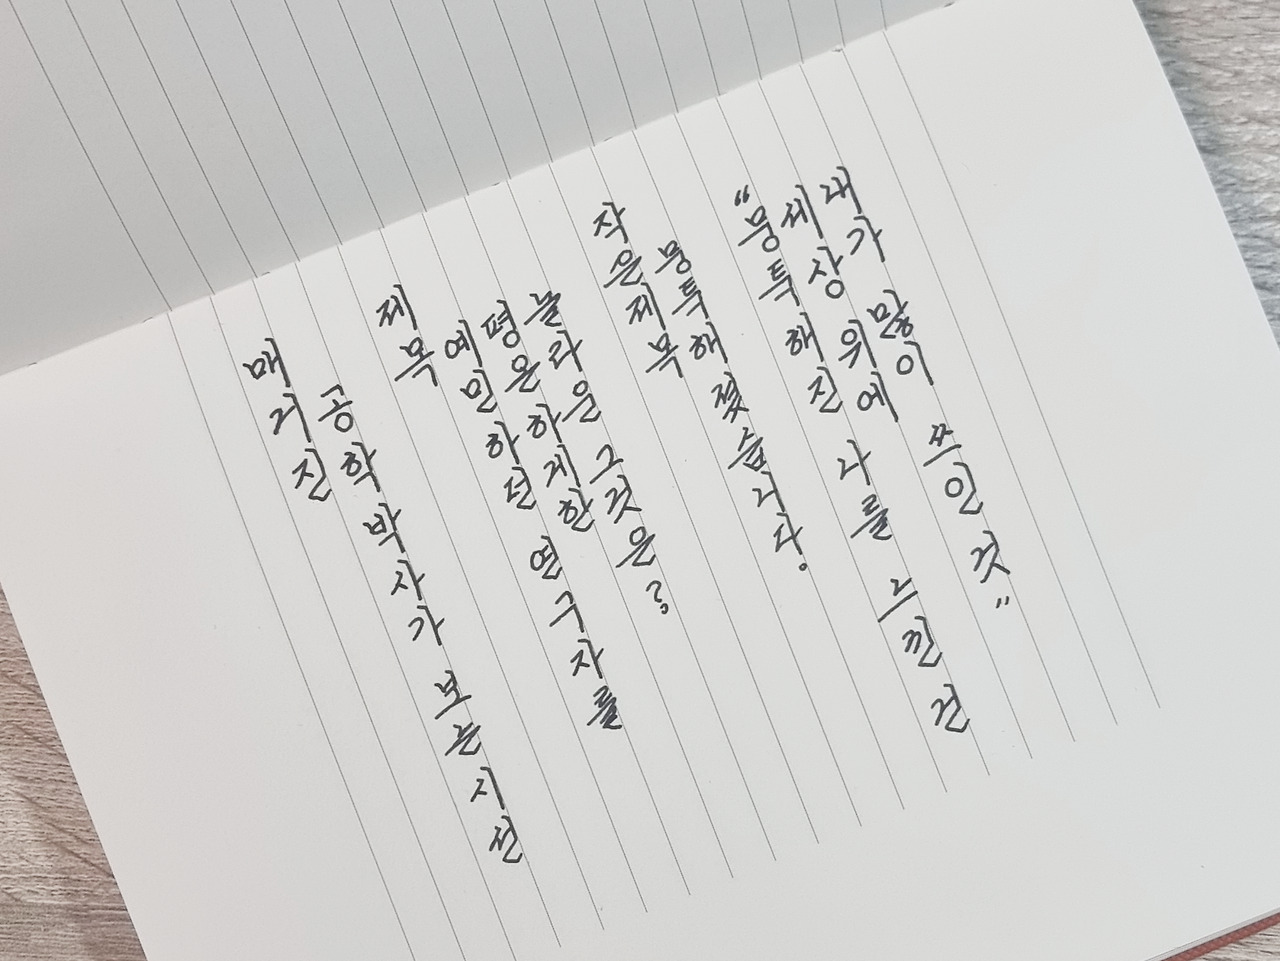 매거진
공학 박사가 보는 시선
제목
예민하던 연구자를
평온하게한
놀라운 그것은?
작은제목
뭉툭해졌습니다.
“뭉툭해진 나를 느낀 건
세상 위에
내가 많이 쓰인 것”